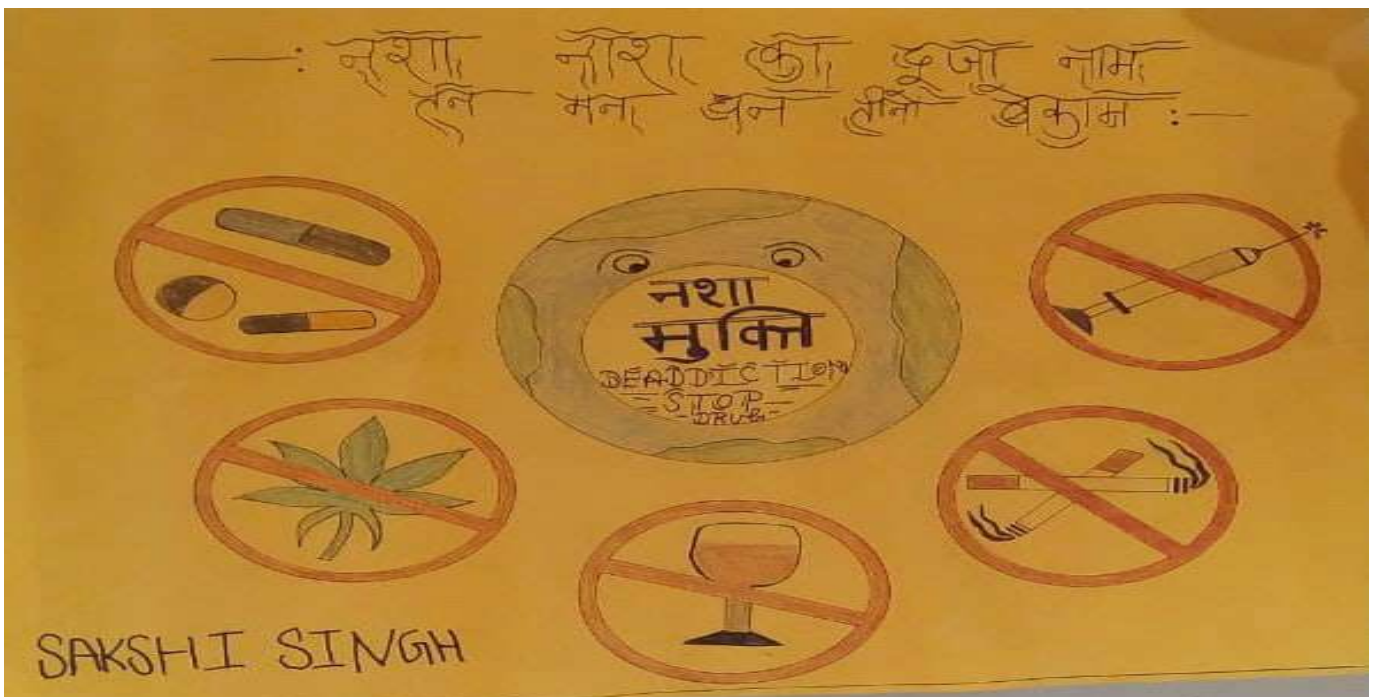 —: नशा नाश का दूजा नाम
तन मन धन तीनो बेकाम :—
नशा
मुक्ति
DEADDICTION
STOP
DRUG
SAKSHI SINGH